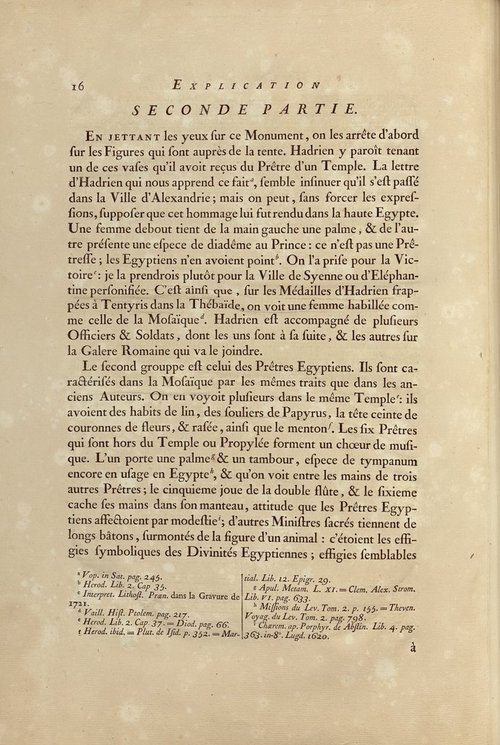 16 EXPLICATION
SECONDE PARTIE.
EN JETTANT les yeux ſur ce Monument, on les arrête d'abord
ſur les Figures qui ſont auprès de la tente. Hadrien y paroît tenant
un de ces vaſes qu'il avoit reçus du Prêtre d'un Temple. La lettre
d'Hadrien qui nous apprend ce faitᵃ, ſemble inſinuer qu'il s'eſt paſſé
dans la Ville d'Alexandrie; mais on peut, ſans forcer les expreſ-
ſions, ſuppoſer que cet hommage lui fut rendu dans la haute Egypte.
Une femme debout tient de la main gauche une palme, & de l'au-
tre préſente une eſpece de diadême au Prince: ce n'eſt pas une Prê-
treſſe; les Egyptiens n'en avoient pointᵇ. On l'a priſe pour la Vic-
toireᶜ: je la prendrois plutôt pour la Ville de Syenne ou d'Eléphan-
tine perſonifiée. C'eſt ainſi que, ſur les Médailles d'Hadrien frap-
pées à Tentyris dans la Thébaïde, on voit une femme habillée com-
me celle de la Moſaïqueᵈ. Hadrien eſt accompagné de pluſieurs
Officiers & Soldats, dont les uns ſont à ſa ſuite, & les autres ſur
la Galere Romaine qui va le joindre.
Le ſecond grouppe eſt celui des Prêtres Egyptiens. Ils ſont ca-
ractériſés dans la Moſaïque par les mêmes traits que dans les an-
ciens Auteurs. On en voyoit pluſieurs dans le même Templeᵉ: ils
avoient des habits de lin, des ſouliers de Papyrus, la tête ceinte de
couronnes de fleurs, & raſée, ainſi que le mentonᶠ. Les ſix Prêtres
qui ſont hors du Temple ou Propylée forment un chœur de muſi-
que. L'un porte une palmeᵍ & un tambour, eſpece de tympanum
encore en uſage en Egypteʰ, & qu'on voit entre les mains de trois
autres Prêtres; le cinquieme joue de la double flûte, & le ſixieme
cache ſes mains dans ſon manteau, attitude que les Prêtres Egyp-
tiens affectoient par modeſtieⁱ; d'autres Miniſtres ſacrés tiennent de
longs bâtons, ſurmontés de la figure d'un animal: c'étoient les effi-
gies ſymboliques des Divinités Egyptiennes; effigies ſemblables
ᵃ Vop. in Sat. pag. 245.
ᵇ Herod. Lib. 2. Cap 35.
ᶜ Interpret. Lithoſt. Præn. dans la Gravure de
1721.
ᵈ Vaill. Hiſt. Ptolem. pag. 217.
ᵉ Herod. Lib. 2. Cap. 37. = Diod. pag. 66.
ᶠ Herod. ibid. = Plut. de Iſid. p. 352. = Mar-
tial. Lib. 12. Epigr. 29.
ᵍ Apul. Metam. L. XI. = Clem. Alex. Strom.
Lib. VI. pag. 633.
ʰ Miſſions du Lev. Tom. 2. p. 155. = Theven.
Voyag. du Lev. Tom. 2. pag. 798.
ⁱ Chærem. ap. Porphyr. de Abſtin. Lib. 4. pag.
363. in-8°. Lugd. 1620.
à